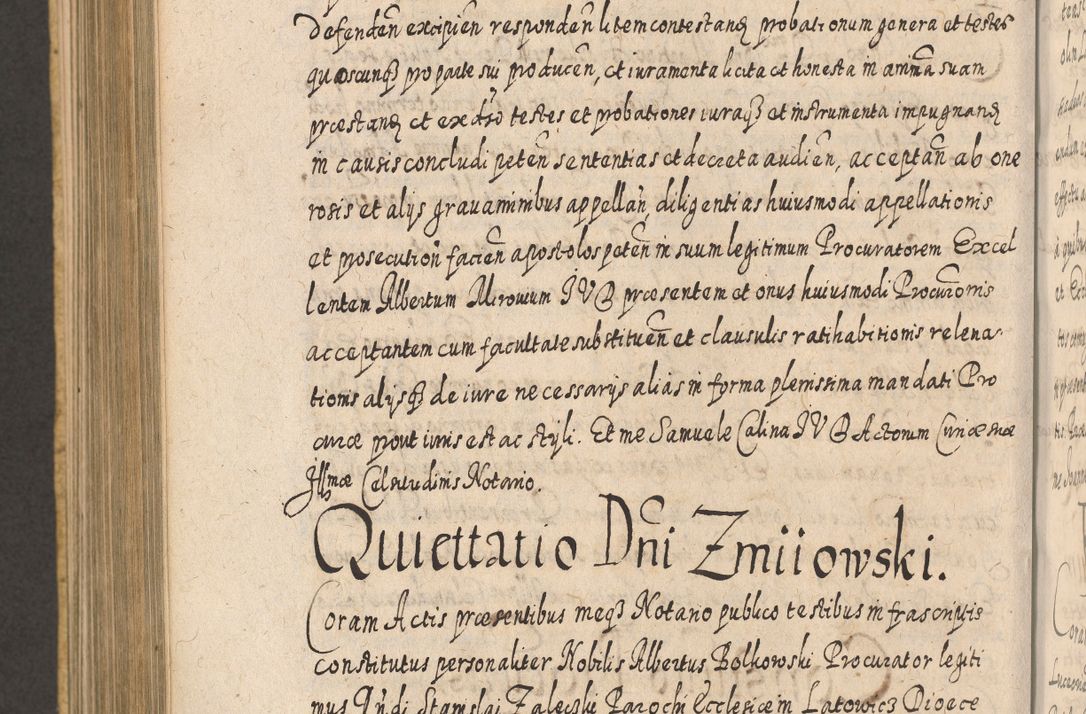 Defenden excipien responden litemcontestanq̃ probationum genera et testes
quoscunq̃ pro parte sui producen, et iuramenta licita et honesta in amm̃a suam
præstanq̃ et ex dr̃so testes et probationes iuraq̃ et instrumenta impugnanq̃
in causis concludi peten̄ sententias et decreta audien̄, acceptan̄ ab one
rosis et alijs grauaminibus appellan̄, diligentias huiusmodi appellationis
et prosecution̄ facien̄ apostolos peten̄ in suum legitimum Procuratorem Excel
lentem Albertum Mirouium IVD præsentem et onus huiusmodi Procur̃onis
acceptantem cum facultate substituen̄ et clausulis ratihabitionis releua
tionis alijsq̃ de iure necessarijs alias in forma plenissima mandati Pro
curæ prout iuris est ac styli. Et me Samuele Calina IVD Actorum Curiæ suæ
Illmæ Celsitudinis Notario.
Quiettatio Dn̄i Zmiiowski.
Coram Actis præsentibus meq̃ Notario publico testibus infrascriptis
constitutus personaliter Nobilis Albertus Bolkowski Procurator legiti
mus Vn̄di Stanislai Zaleczki Parochi Ecclesiæ in Latowicz Diœce